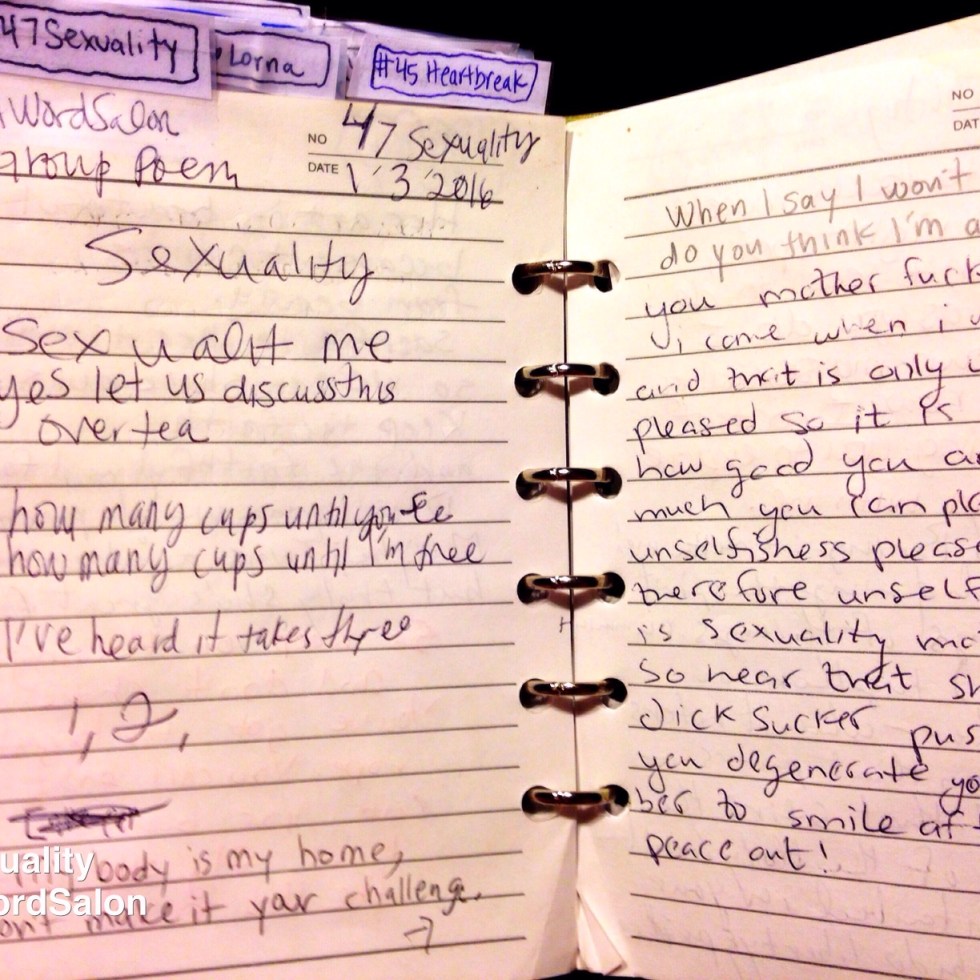 47 Sexuality
Lorna
#45 Heartbreak
WordSalon
group Poem
NO 47 Sexuality
DATE 1 3 2016
Sexuality
Sexualit me
yes let us discuss this
over tea
how many cups until you
how many cups until I'm free
I've heard it takes three
1, 2,
body is my home,
make it your challenge.
→
uality
ordSalon
NO
DAT
When I say I won't
do you think I'm a
you mother fuck
i come when i w
and that is only
pleased so it is
how good you a
much you can ple
unselfishess please
therefore unself
is sexuality mo
so hear that sh
dick sucker pus
you degenerate yo
ber to smile at
peace out!